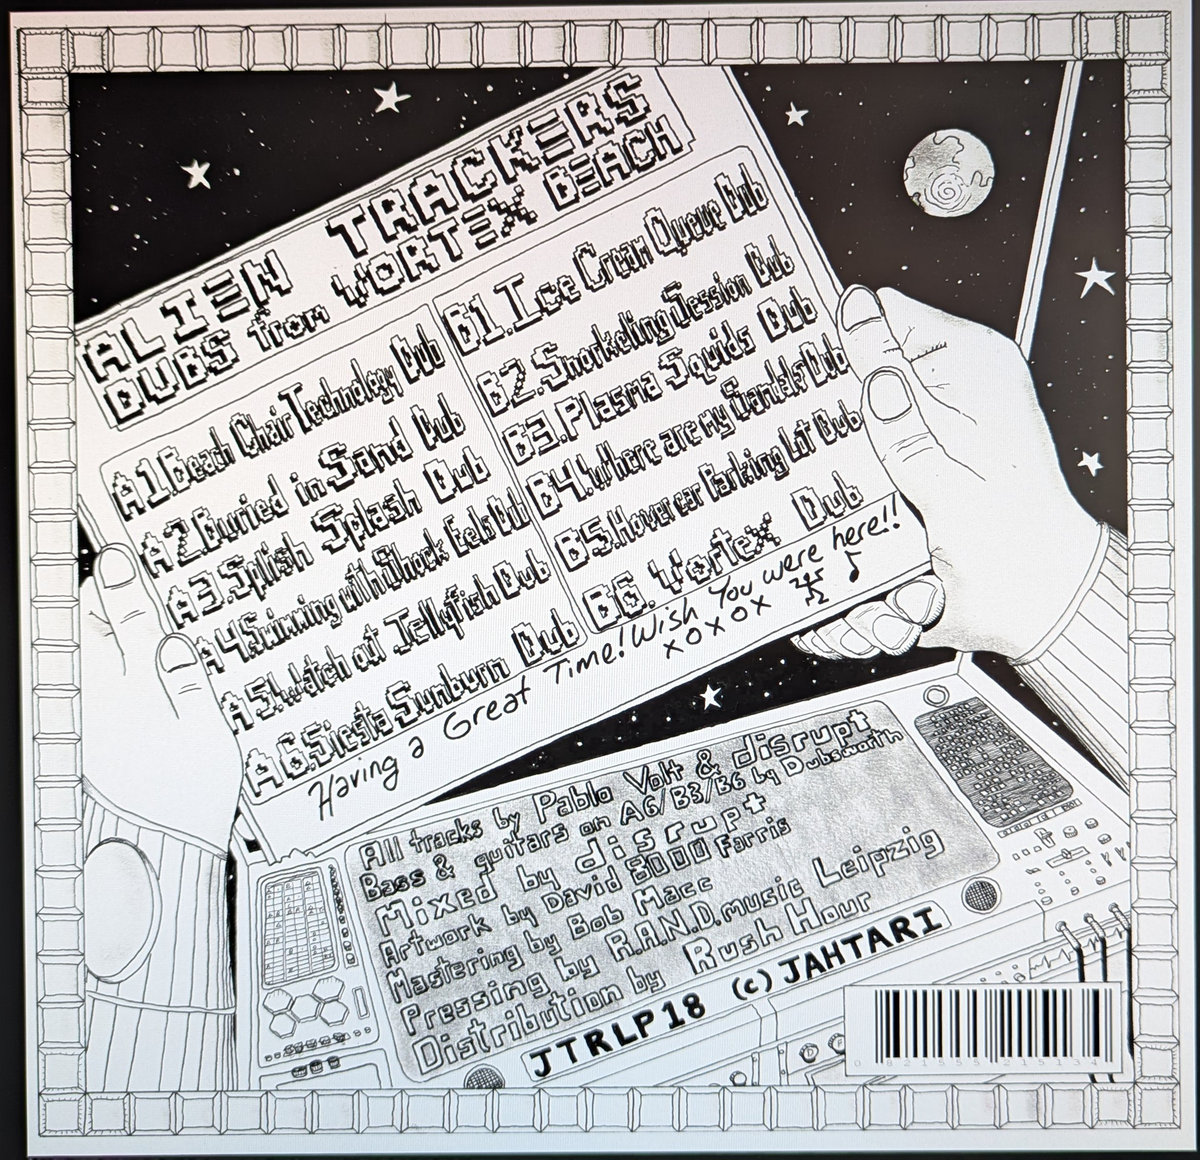 ALIEN TRACKERS
DUBS from VORTEX BEACH
A1. Beach Chair Technology Dub
A2. Buried in Sand Dub
A3. Splish Splash Dub
A4. Swimming with Shock Eels Dub
A5. Watch out Jellyfish Dub
A6. Siesta Sunburn Dub
B1. Ice Cream Queue Dub
B2. Snorkeling Session Dub
B3. Plasma Squids Dub
B4. Where are my Sandals Dub
B5. Hovercar Parking Lot Dub
B6. Vortex Dub
Having a Great Time! Wish You were here!!
xoxox
All tracks by Pablo Volt & disrupt
Bass & guitars on A6/B3/B6 by Dubsworth
Mixed by disrupt
Artwork by David 8000 Farris
Mastering by Bob Macc
Pressing by R.A.N.D. music Leipzig
Distribution by Rush Hour
JTRLP18 (c) JAHTARI